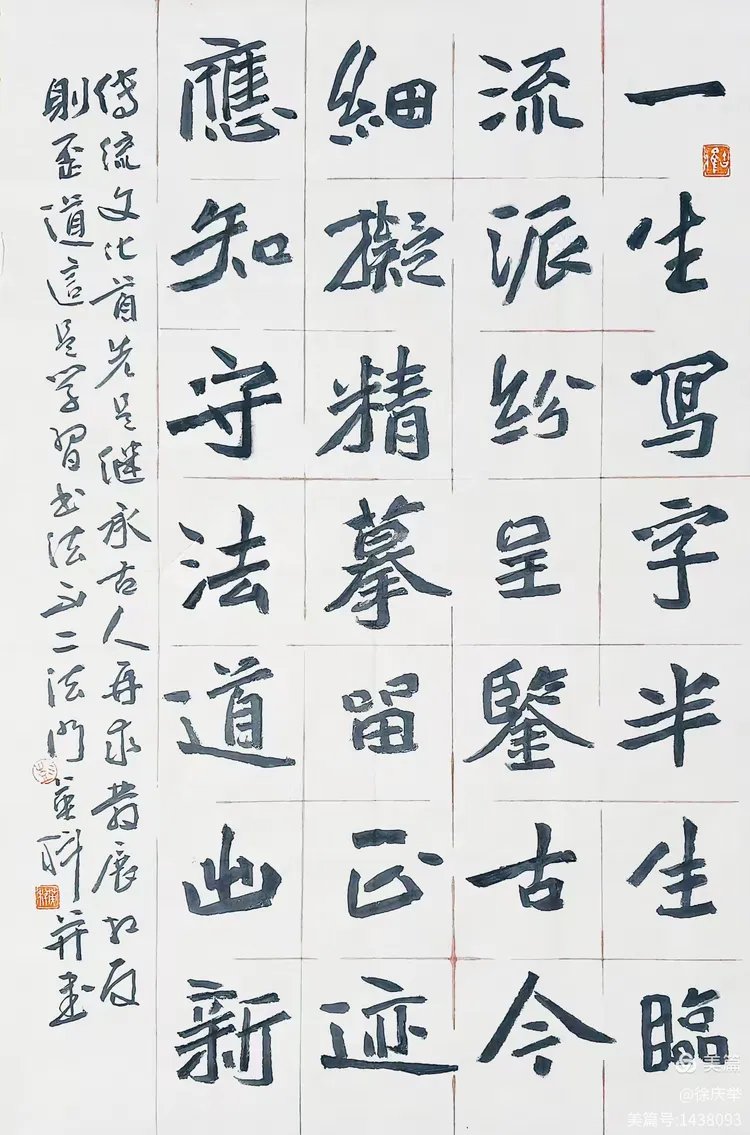 一生寫字半生臨
流派紛呈鑒古今
細擬精摹留正迹
應知守法道出新
傳流文化首先是继承古人再求發展相反
則歪道這是学習书法不二法门 科并书
美篇
@徐庆举
美篇号:1438093